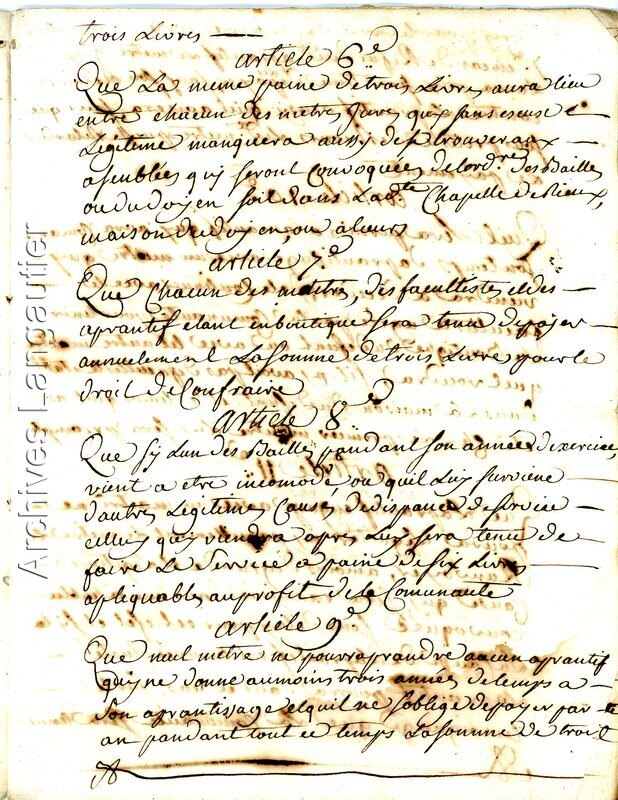 trois Livres
article 6.e
Que La meme paine de trois Livres aura lieu
entre chacun des metre Jures quy sans escuse
Legitime manquera aussy de se trouver aux
asemblées quy seront Convoquées de lordre des Bailles
ou du doyen soit dans La de. Chapelle de Rieux,
maison du doyen, ou aleurs
article 7.e
Que Chacun des maitres, des facultistes et des
aprantif etant en boutique sera tenu de payer
annuelement La somme de trois Livre pour le
droit de Confrairie
article 8.e
Que sy Lun des Bailles pandant son année dexercice,
vient a etre incomodé ou quil Luy surviene
dautres Legitimes Causes de dispance de service
celluy quy viendra apres Luy sera tenu de
faire Le Service a paine de six Livres
apliquables au profit de la Comunauté
article 9.e
Que neul metre ne pourra prandre aucun aprantif
quy ne donne au moins trois années de temps a
son aprantissage et quil ne soblige de payer par
an pandant tout ce temps La somme de trois
Archives Langautier